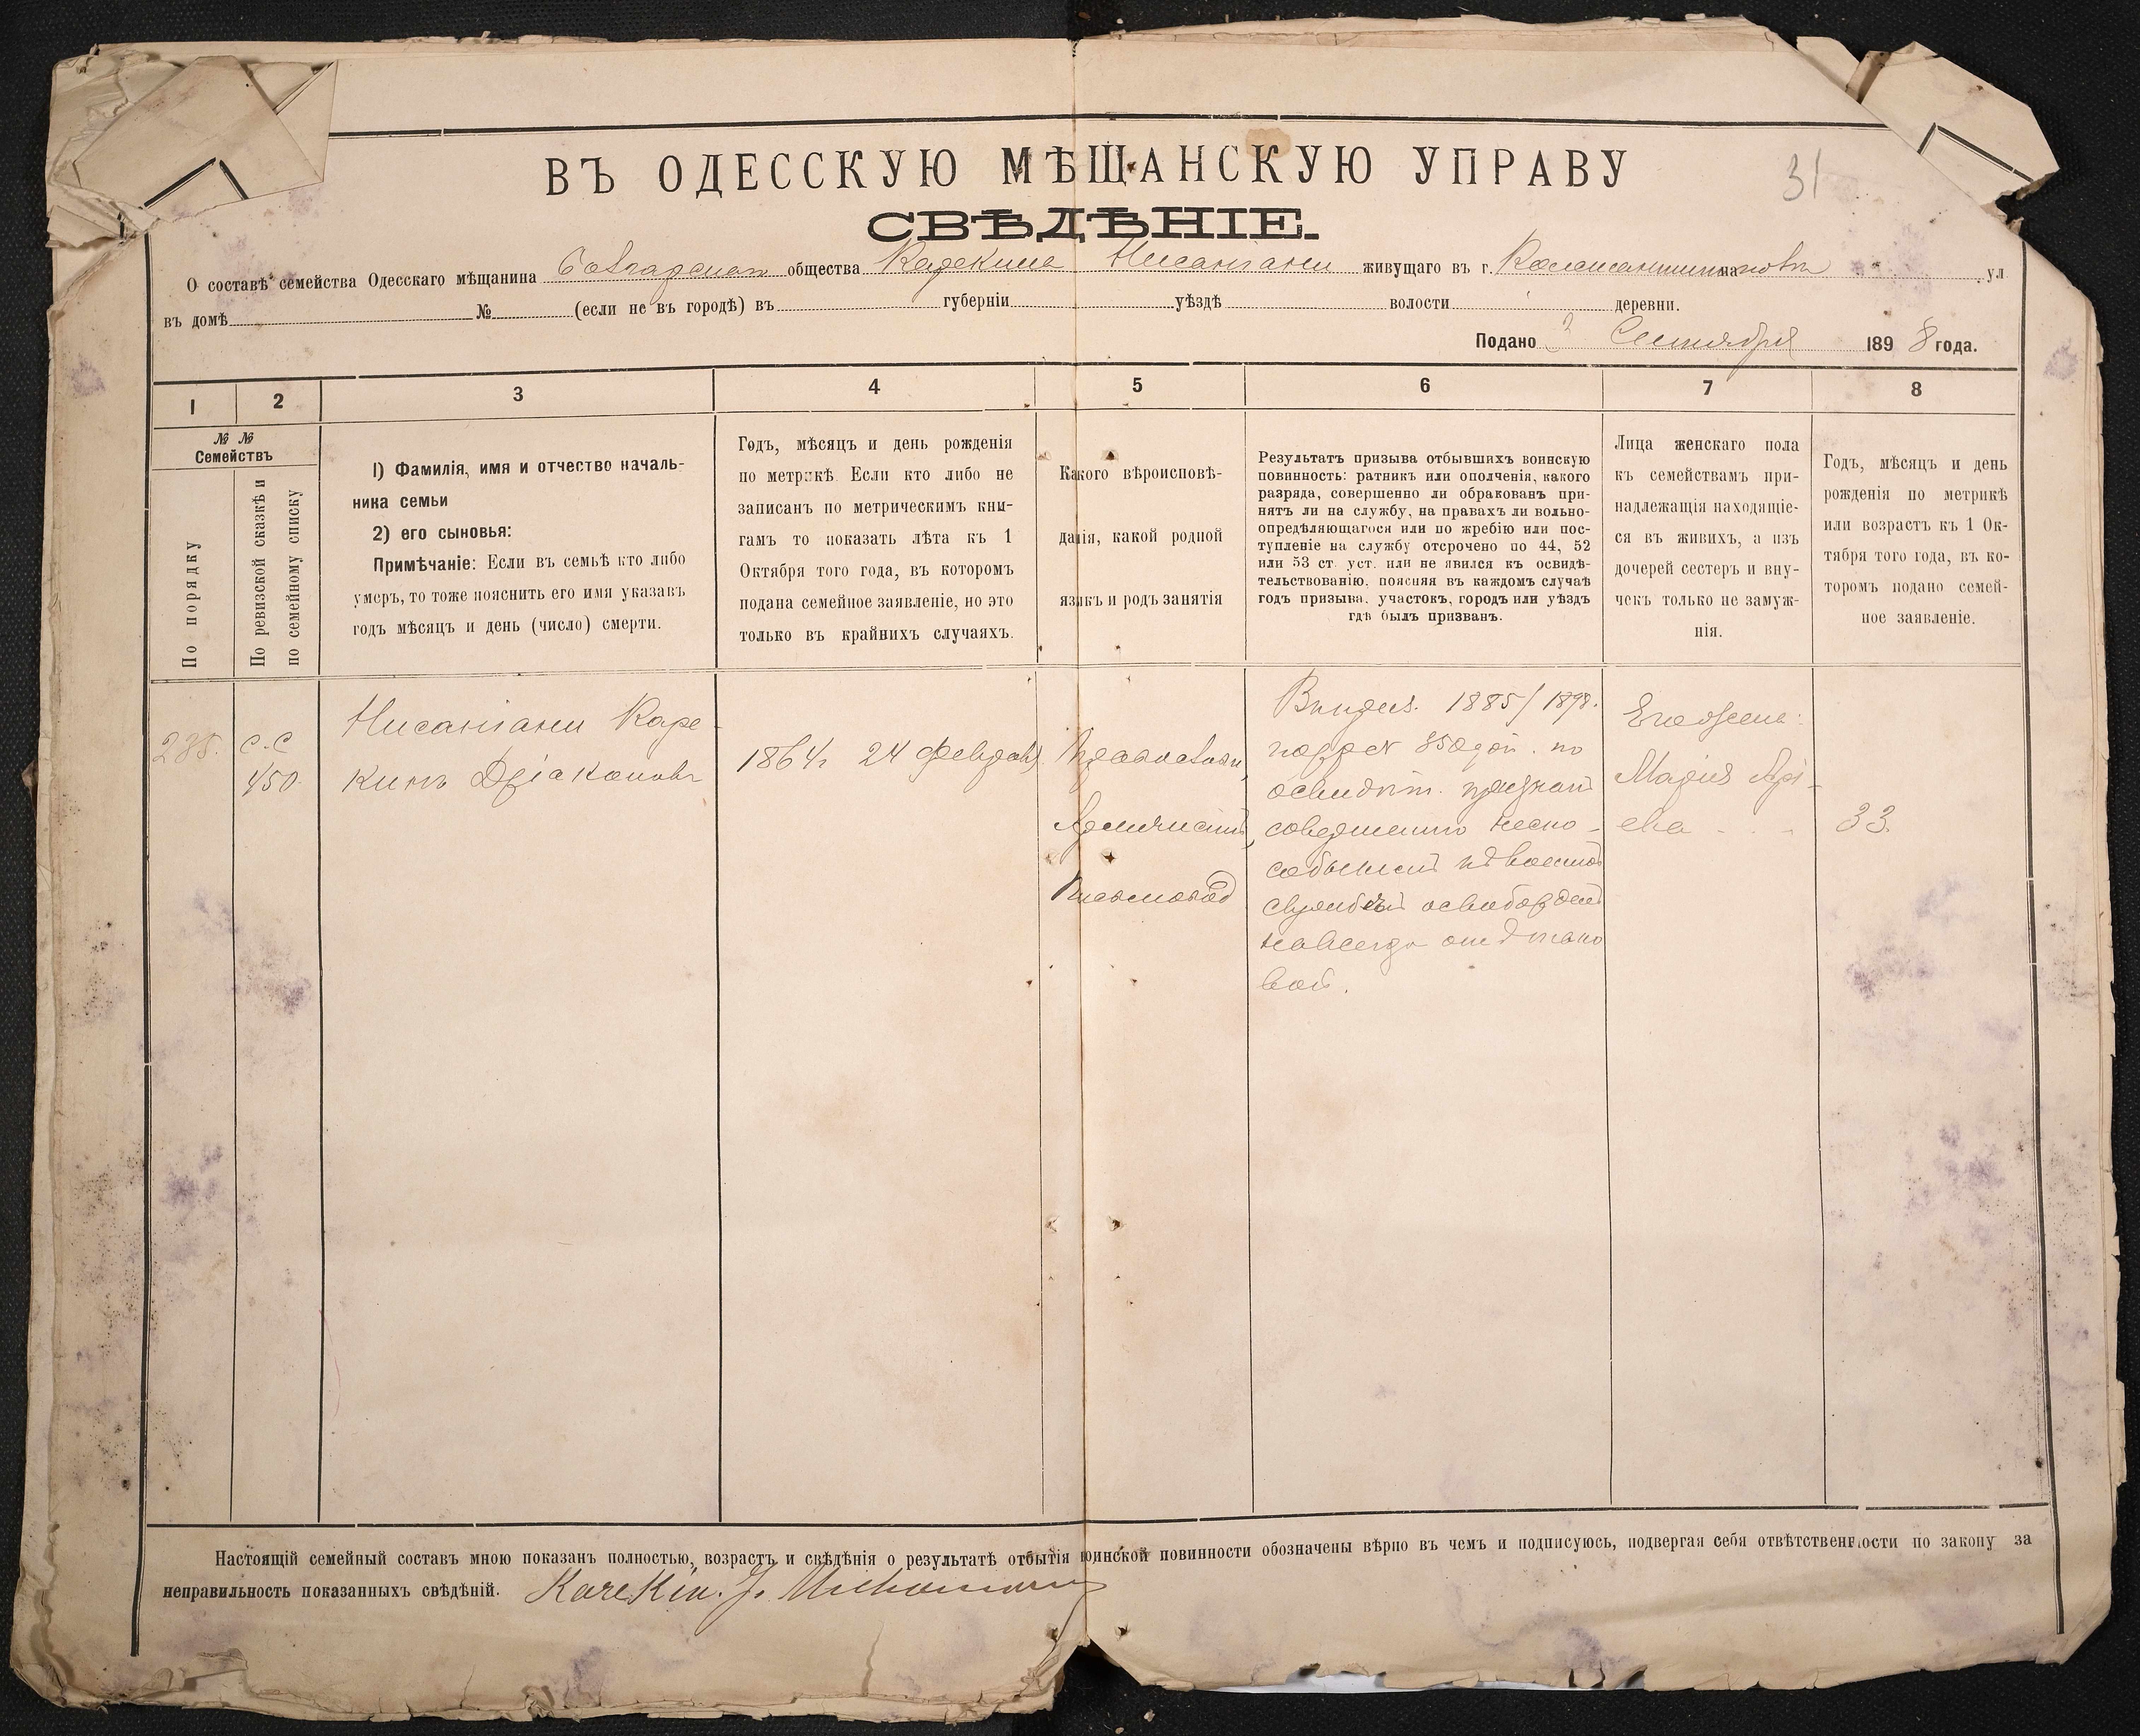 31
ВЪ ОДЕССКУЮ МѢЩАНСКУЮ УПРАВУ
СВѢДѢНІЕ.
О составѣ семейства Одесскаго мѣщанина общества Карекина Нисаніани живущаго въ г. на ул
въ домѣ № (если не въ городѣ) въ губерніи уѣздѣ волости деревни.
Подано 3 Сентября 1898 года.
1 2 3 4 5 6 7 8
№ № Семействъ
По порядку
По ревизской сказкѣ и
по семейному списку
1) Фамилія, имя и отчество началь-
ника семьи
2) его сыновья:
Примѣчаніе: Если въ семьѣ кто либо
умеръ, то тоже пояснить его имя указавъ
годъ мѣсяцъ и день (число) смерти.
Годъ, мѣсяцъ и день рожденія
по метрикѣ. Если кто либо не
записанъ по метрическимъ кни-
гамъ то показать лѣта къ 1
Октября того года, въ которомъ
подана семейное заявленіе, но это
только въ крайнихъ случаяхъ.
Какого вѣроисповѣ-
данія, какой родной
языкъ и родъ занятія
Результатъ призыва отбывшихъ воинскую
повинность: ратникъ или ополченія, какого
разряда, совершенно ли обракованъ при-
нятъ ли на службу, на правахъ ли вольно-
опредѣляющагося или по жребію или пос-
тупленіе на службу отсрочено по 44, 52
или 53 ст. уст. или не явился къ освидѣ-
тельствованію, поясняя въ каждомъ случаѣ
годъ призыва, участокъ, городъ или уѣздъ
гдѣ былъ призванъ.
Лица женскаго пола
къ семействамъ при-
надлежащія находящіе-
ся въ живихъ, а изъ
дочерей сестеръ и вну-
чекъ только не замуж-
нія.
Годъ, мѣсяцъ и день
рожденія по метрикѣ
или возрастъ къ 1 Ок-
тября того года, въ ко-
торомъ подано семей-
ное заявленіе.
285.
с.с
450
Нисаніани Каре-
кинъ Дзіаконовъ
1864г 24 Февраля
Православн,
Армянскій,
Письмовод
1885/1898.
по
освидѣт. признан
совершенно неспо-
собнымъ къ военной
службѣ освобожденъ
навсегда отъ
вой.
Его жена:
Марія
ева
33.
Настоящій семейный составъ мною показанъ полностью, возрастъ и свѣдѣнія о результатѣ отбытія воинской повинности обозначены вѣрно въ чемъ и подписуюсь, подвергая себя отвѣтственности по закону за
неправильность показанныхъ свѣдѣній. Karekin. J.